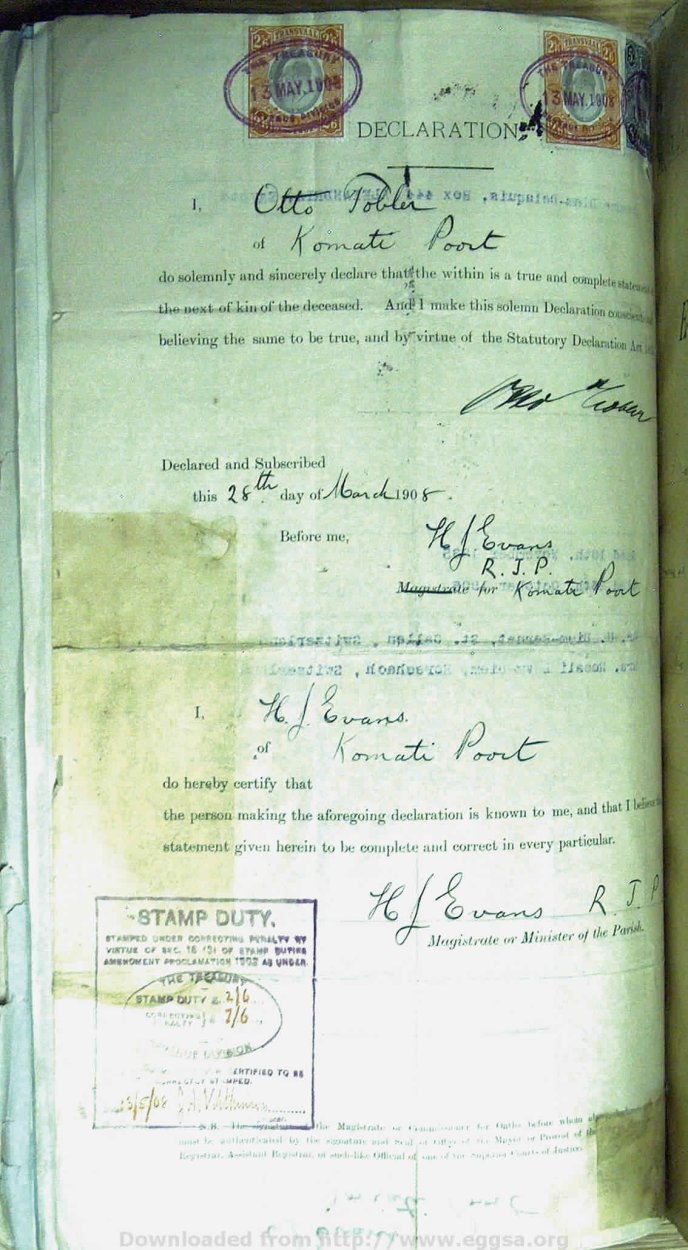 TRANSVAAL
2/6 2/6
THE TREASURY
13 MAY.1908
REVENUE DIVISION
TRANSVAAL
THE TREASURY
13 MAY.1908
REVENUE DIVISION
DECLARATION
I, Otto Tobler
of Komati Poort
do solemnly and sincerely declare that the within is a true and complete statement
the next of kin of the deceased. And I make this solemn Declaration
believing the same to be true, and by virtue of the Statutory Declaration Act
Declared and Subscribed
this 28th day of March 1908.
Before me, H J Evans
R. J. P.
Magistrate for Komati Poort
I, H. J. Evans.
of Komati Poort
do hereby certify that
the person making the aforegoing declaration is known to me, and that I believe the
statement given herein to be complete and correct in every particular.
H J Evans R. J. P
Magistrate or Minister of the Parish.
STAMP DUTY.
STAMPED UNDER CORRECTING PENALTY BY
VIRTUE OF SEC. 16 (3) OF STAMP DUTIES
AMENDMENT PROCLAMATION 1902 AS UNDER.
THE TREASURY
STAMP DUTY £ 2/6
7/6
DIVISION
CERTIFIED TO BE
CORRECTLY STAMPED.
13/5/08
N.B. the Magistrate or Commissioner for Oaths before whom
must be authenticated by the signature and Seal of Office of the Mayor or Provost of the
Registrar, Assistant Registrar, or such-like Official of one of the Superior Courts of Justice.
Downloaded from http://www.eggsa.org